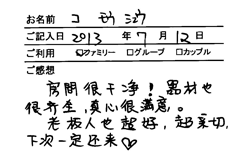 お名前 コ モウ ジュウ
ご記入日 2013 年 7 月 12 日
ご利用 ☑ファミリー □グループ □カップル
ご感想
房间很干净！器材也
很齐全，真心很满意。
老板人也超好，超亲切，
下次一定还来♡